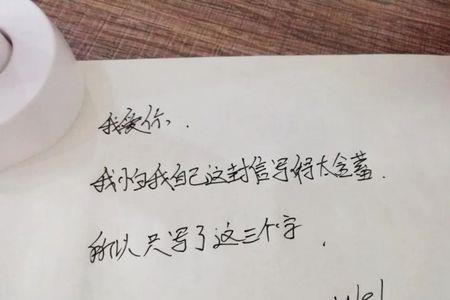 我爱你、
我怕我自己这封信写得太含蓄.
所以只写了这三个字.